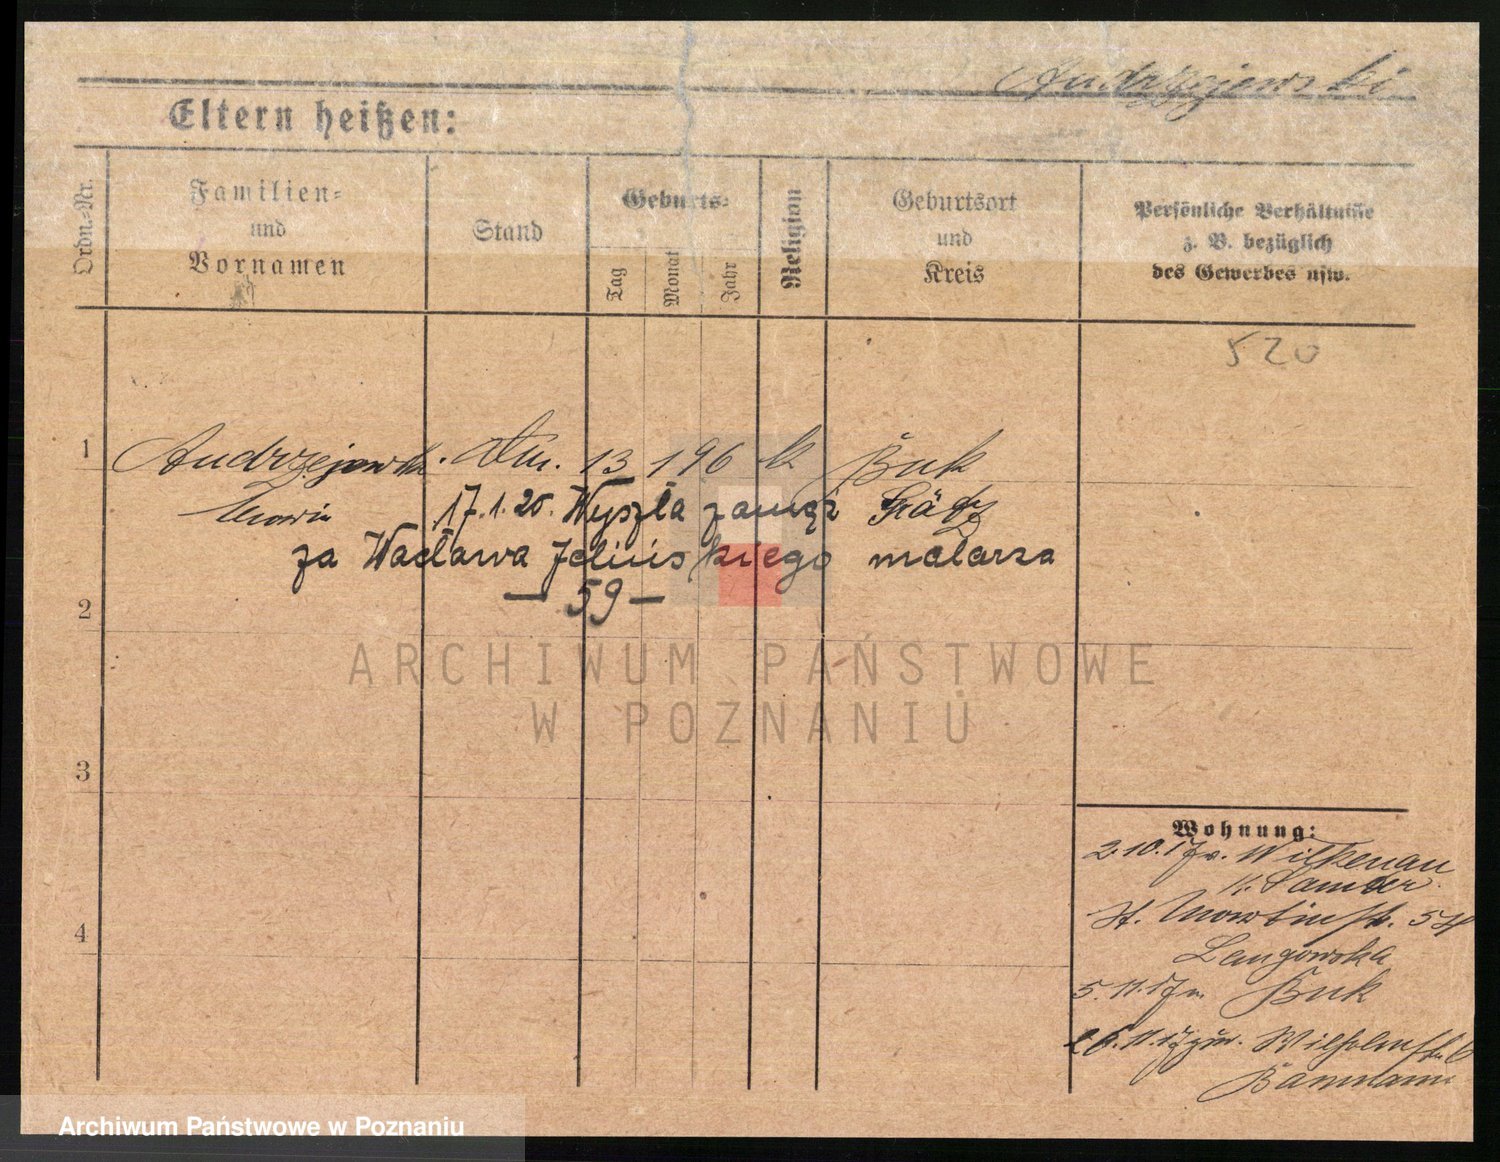 Andrzejewski
Eltern heißen:
Ordn.-Nr.
Familien-
und
Vornamen
Stand
Geburts-
Tag
Monat
Jahr
Religion
Geburtsort
und
Kreis
Persönliche Verhältnisse
z. B. bezüglich
des Gewerbes usw.
520
1
Andrzejewski 13 1 96 k Buk
17.1.20. Wyszła zamąż Grätz
za Wacława Jelińskiego malarza
— 59 —
2
3
4
ARCHIWUM PAŃSTWOWE
W POZNANIU
Wohnung:
2.10.17 v. Wilkenau
St. Martinstr. 54
Langowska
5.11.17 n. Buk
26.11.17 zur. Wilhelmstr. 6
Archiwum Państwowe w Poznaniu